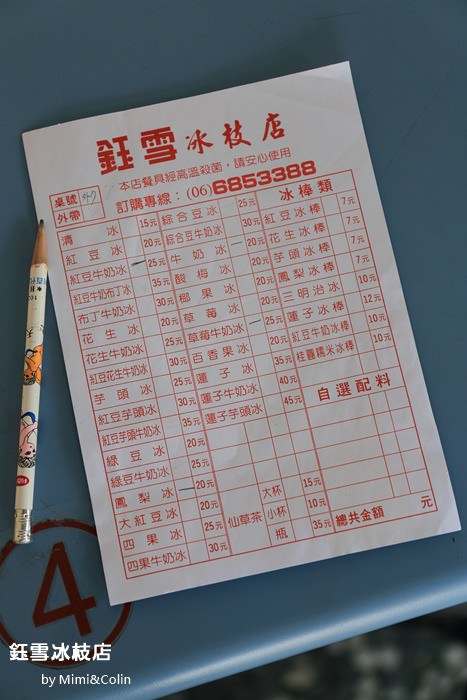 鈺雪冰枝店
本店餐具經高溫殺菌，請安心使用
訂購專線：(06)6853388
桌號 47
外帶
清冰 15元
紅豆冰 20元
紅豆牛奶冰 25元
紅豆牛奶布丁冰 35元
布丁牛奶冰 30元
花生冰 20元
花生牛奶冰 25元
紅豆花生牛奶冰 30元
芋頭冰 25元
紅豆芋頭冰 30元
紅豆芋頭牛奶冰 35元
綠豆冰 20元
綠豆牛奶冰 25元
鳳梨冰 20元
大紅豆冰 25元
四果冰 25元
四果牛奶冰 30元
綜合豆冰 25元
綜合豆牛奶冰 30元
牛奶冰 20元
酸梅冰 20元
椰果冰 20元
草莓冰 20元
草莓牛奶冰 25元
百香果冰 30元
蓮子冰 35元
蓮子牛奶冰 40元
蓮子芋頭冰 45元
仙草茶
大杯 15元
小杯 10元
瓶 35元
冰棒類
紅豆冰棒 7元
花生冰棒 7元
芋頭冰棒 7元
鳳梨冰棒 7元
三明治冰 10元
蓮子冰棒 12元
紅豆牛奶冰棒 10元
桂圓糯米冰棒 10元
自選配料
總共金額 元
4
鈺雪冰枝店
by Mimi&Colin